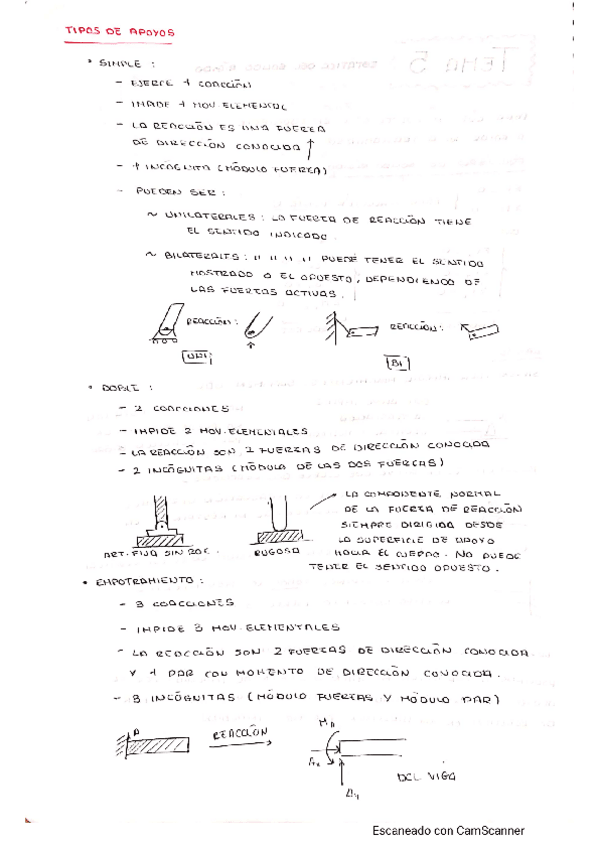 TIPOS DE APOYOS
• SIMPLE :
- EJERCE 1 COACCIÓN
- IMPIDE 1 MOV. ELEMENTAL
- LA REACCIÓN ES UNA FUERZA
DE DIRECCIÓN CONOCIDA ↑
- 1 INCÓGNITA (MÓDULO FUERZA)
- PUEDEN SER :
~ UNILATERALES : LA FUERZA DE REACCIÓN TIENE
EL SENTIDO INDICADO.
~ BILATERALES : " " " " PUEDE TENER EL SENTIDO
MOSTRADO O EL OPUESTO, DEPENDIENDO DE
LAS FUERZAS ACTIVAS.
REACCIÓN :
REACCIÓN :
UNI
BI
• DOBLE :
- 2 COACCIONES
- IMPIDE 2 MOV. ELEMENTALES
- LA REACCIÓN SON 2 FUERZAS DE DIRECCIÓN CONOCIDA
- 2 INCÓGNITAS (MÓDULO DE LAS DOS FUERZAS)
LA COMPONENTE NORMAL
DE LA FUERZA DE REACCIÓN
SIEMPRE DIRIGIDA DESDE
LA SUPERFICIE DE APOYO
HACIA EL CUERPO. NO PUEDE
TENER EL SENTIDO OPUESTO.
ART. FIJA SIN ROZ.
RUGOSO
• EMPOTRAMIENTO :
- 3 COACCIONES
- IMPIDE 3 MOV. ELEMENTALES
- LA REACCIÓN SON 2 FUERZAS DE DIRECCIÓN CONOCIDA
Y 1 PAR CON MOMENTO DE DIRECCIÓN CONOCIDA.
- 3 INCÓGNITAS (MÓDULO FUERZAS Y MÓDULO PAR)
A
REACCIÓN
MA
Ax
Ay
DCL VIGA
Escaneado con CamScanner